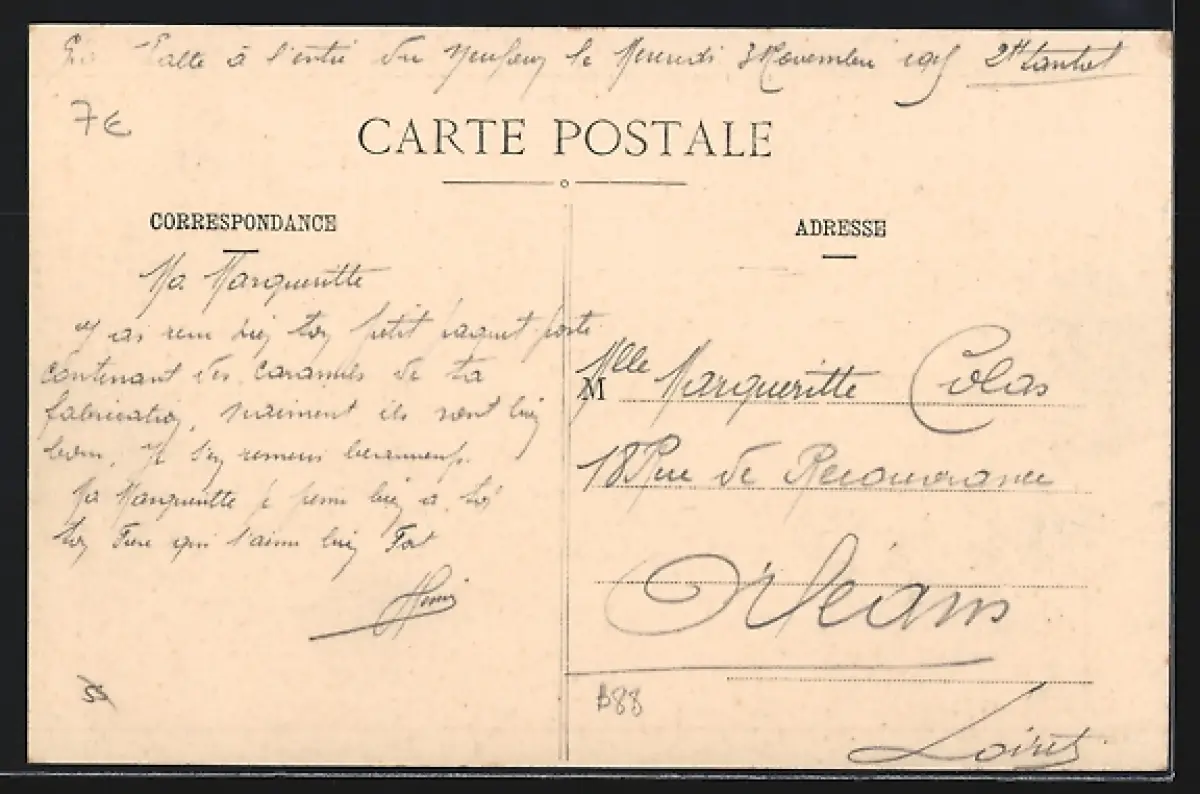 à l'entrée du le Mercredi 3 Novembre
7€
CARTE POSTALE
CORRESPONDANCE
ADRESSE
Ma Margueritte
ai reçu bien ton petit paquet poste
contenant des caramels de ta
fabrication, vraiment ils sont bien
bons, Je t'en remercie beaucoup.
Ma Margueritte je pense bien a toi
ton Frère qui t'aime bien Fort
Henri
Mlle Margueritte Colas
18 Rue de Recouvrance
Orléans
Loiret
B88